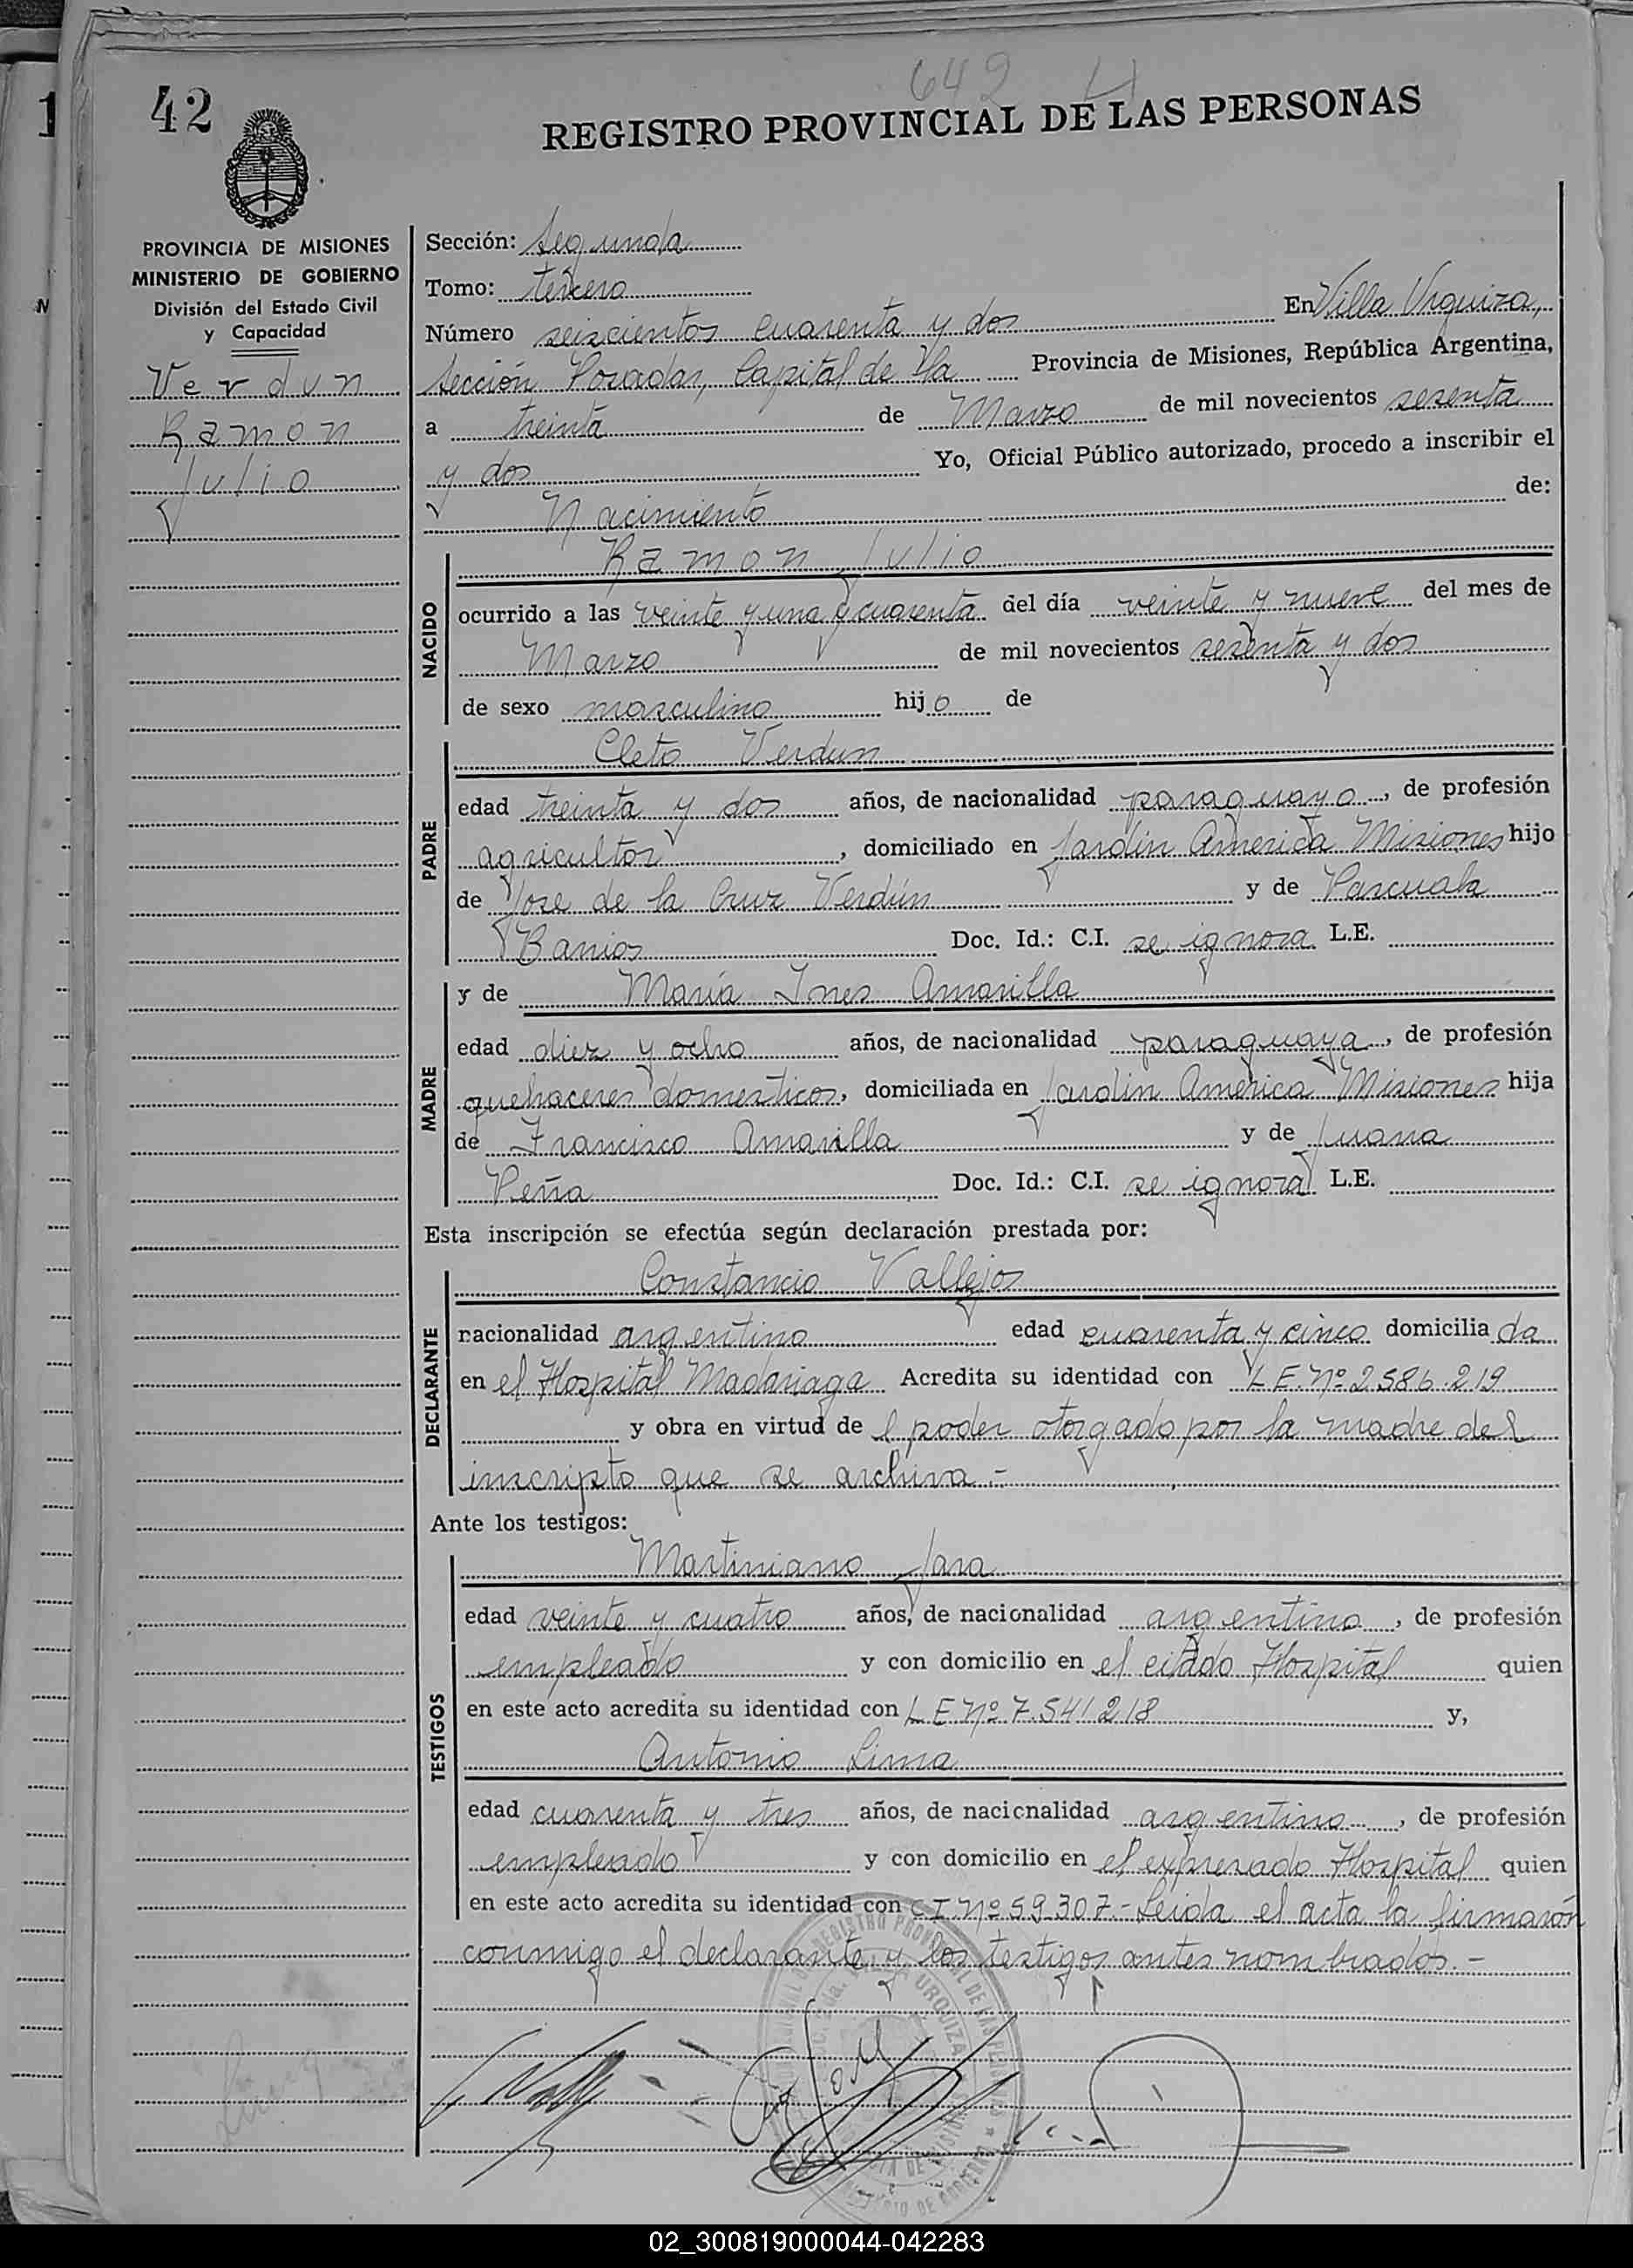 642
42
REGISTRO PROVINCIAL DE LAS PERSONAS
PROVINCIA DE MISIONES
MINISTERIO DE GOBIERNO
División del Estado Civil
y Capacidad
Verdun
Ramon
Julio
Sección: Segunda
Tomo: tercero
Número seiscientos cuarenta y dos En Villa Urquiza,
Sección Posadas, Capital de la Provincia de Misiones, República Argentina,
a treinta de Marzo de mil novecientos sesenta
y dos Yo, Oficial Público autorizado, procedo a inscribir el
Nacimiento de:
NACIDO
Ramon Julio
ocurrido a las veinte y una y cuarenta del día veinte y nueve del mes de
Marzo de mil novecientos sesenta y dos
de sexo masculino hijo de
PADRE
Cleto Verdun
edad treinta y dos años, de nacionalidad paraguayo, de profesión
agricultor, domiciliado en Jardin America Misiones hijo
de Jose de la Cruz Verdún y de Pascuala
Banios Doc. Id.: C.I. se ignora L.E.
MADRE
y de María Ines Amarilla
edad diez y ocho años, de nacionalidad paraguaya, de profesión
quehaceres domesticos, domiciliada en Jardin América Misiones hija
de Francisco Amarilla y de Juana
Peña Doc. Id.: C.I. se ignora L.E.
Esta inscripción se efectúa según declaración prestada por:
DECLARANTE
Constancio Vallejos
nacionalidad argentino edad cuarenta y cinco domicilia da
en el Hospital Madariaga Acredita su identidad con L E. Nº 2.586.219
y obra en virtud de l poder otorgado por la madre del
inscripto que se archiva.-
Ante los testigos:
TESTIGOS
Martiniano Jara
edad veinte y cuatro años, de nacionalidad argentino, de profesión
empleado y con domicilio en el citado Hospital quien
en este acto acredita su identidad con L E Nº 7.541.218 y,
Antonio Lima
edad cuarenta y tres años, de nacionalidad argentino, de profesión
empleado y con domicilio en el expresado Hospital quien
en este acto acredita su identidad con C I. Nº 59.307.- Leida el acta la firmarón
conmigo el declarante y los testigos antes nombrados.-
02_300819000044-042283